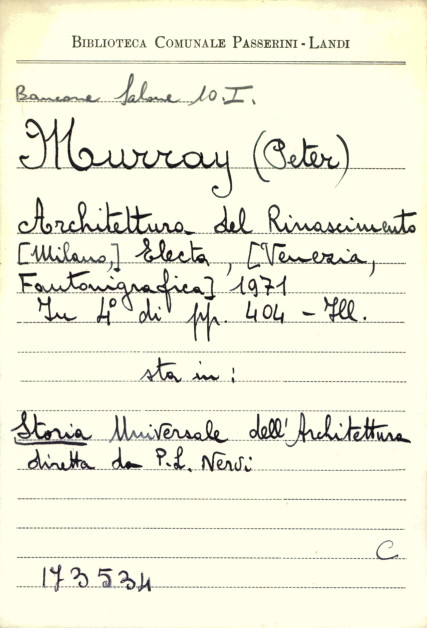 BIBLIOTECA COMUNALE PASSERINI - LANDI
Bancone Salone 10. I.
Murray (Peter)
Architettura del Rinascimento
[Milano,] Electa, [Venezia,
Fantonigrafica] 1971
In 4° di pp. 404 - Ill.
sta in:
Storia Universale dell'Architettura
diretta da P. L. Nervi
C
173534